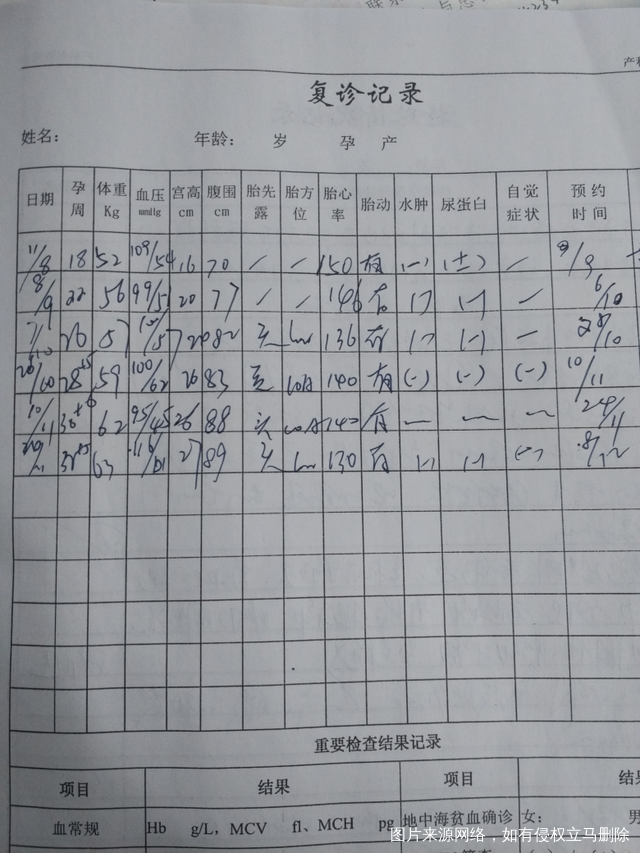 产科
复诊记录
姓名: 年龄: 岁 孕 产
日期 孕周 体重Kg 血压mmHg 宫高cm 腹围cm 胎先露 胎方位 胎心率 胎动 水肿 尿蛋白 自觉症状 预约时间
11/8 18 52 109/54 16 70 / / 150 有 (-) (±) / 9/9
8/9 22 56 99/51 20 77 / / 146 有 (-) (-) - 6/10
26 57 82 头 136 有 (-) (-) - 10
59 100/62 26 83 头 LOA 140 有 (-) (-) (-) 10/11
10/11 62 95/45 26 88 头 LOA 140 有 - - - 24/11
63 27 89 头 130 有 (-) (-) (-) 8/12
重要检查结果记录
项目 结果 项目 结
血常规 Hb g/L, MCV fl、MCH pg 地中海贫血确诊 女: 男
图片来源网络，如有侵权立马删除